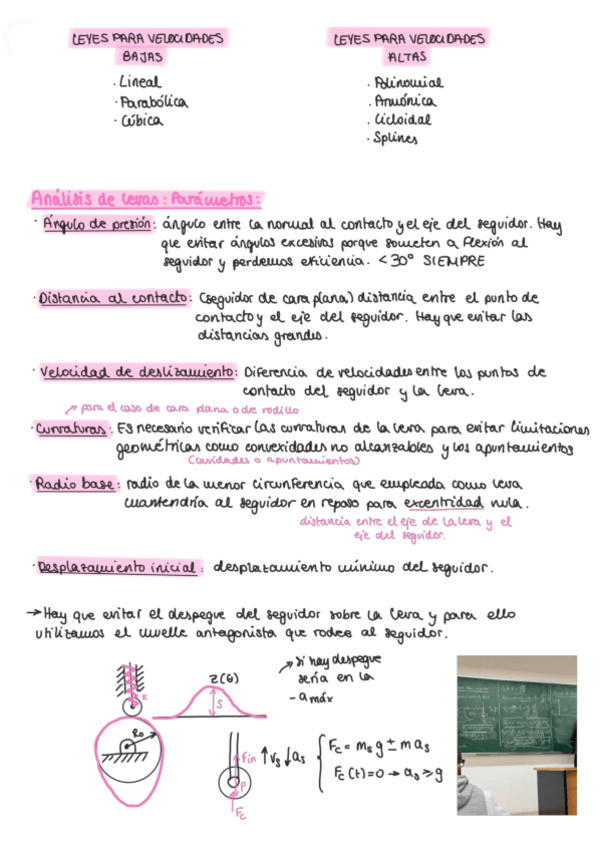 LEYES PARA VELOCIDADES
BAJAS
· Lineal
· Parabólica
· Cúbica
LEYES PARA VELOCIDADES
ALTAS
· Polinomial
· Armónica
· Cicloidal
· Splines
Análisis de levas: Parámetros:
· Ángulo de presión: ángulo entre la normal al contacto y el eje del seguidor. Hay
que evitar ángulos excesivos porque someten a flexión al
seguidor y perdemos eficiencia. < 30° SIEMPRE
· Distancia al contacto: (seguidor de cara plana) distancia entre el punto de
contacto y el eje del seguidor. Hay que evitar las
distancias grandes.
· Velocidad de deslizamiento: Diferencia de velocidades entre los puntos de
contacto del seguidor y la leva.
↗ para el caso de cara plana o de rodillo
· Curvaturas: Es necesario verificar las curvaturas de la leva para evitar limitaciones
geométricas como convexidades no alcanzables y los apuntamientos
(cavidades o apuntamientos)
· Radio base: radio de la menor circunferencia que empleada como leva
mantendría al seguidor en reposo para excentridad nula.
distancia entre el eje de la leva y el
eje del seguidor.
· Desplazamiento inicial: desplazamiento mínimo del seguidor.
→ Hay que evitar el despegue del seguidor sobre la leva y para ello
utilizamos el muelle antagonista que rodea al seguidor.
K
R₀
z(θ)
S
↗ si hay despegue
sería en la
- a máx
Fin ↑vs ↓as
P
Fc
Fc = ms g ± m as
Fc (t) = 0 → as ≥ g